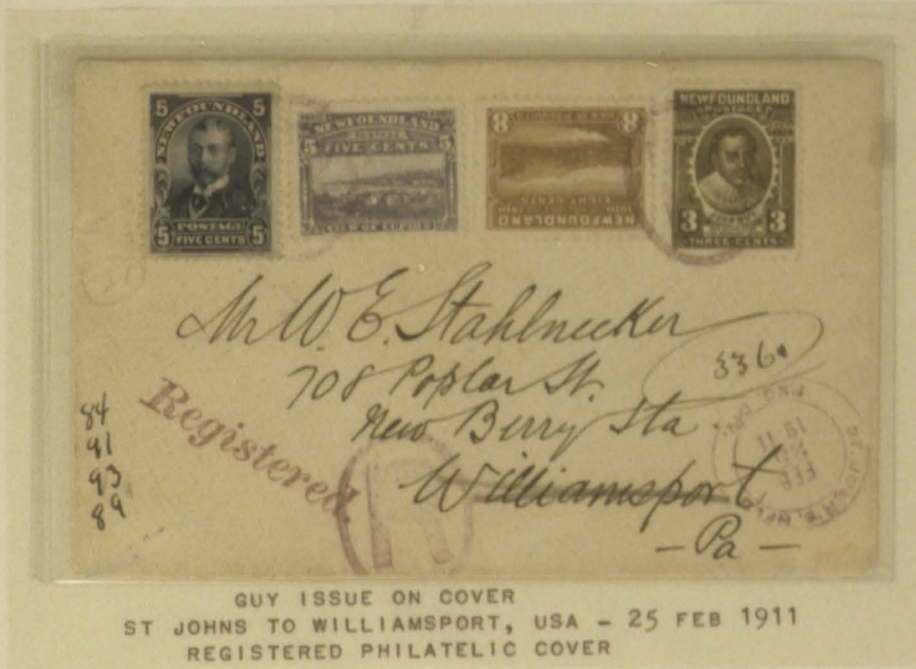 5 5
NEWFOUNDLAND
POSTAGE
5 FIVE CENTS 5
NEWFOUNDLAND
5 FIVE CENTS 5
8 8
EIGHT CENTS
NEWFOUNDLAND
NEWFOUNDLAND
POSTAGE
3 3
THREE CENTS
Mr W. E. Stahlnecker
708 Poplar St.
336
New Berry Sta
Williamsport
Pa
Registered.
R
84
91
93
89
FEB
19 11
GUY ISSUE ON COVER
ST JOHNS TO WILLIAMSPORT, USA - 25 FEB 1911
REGISTERED PHILATELIC COVER